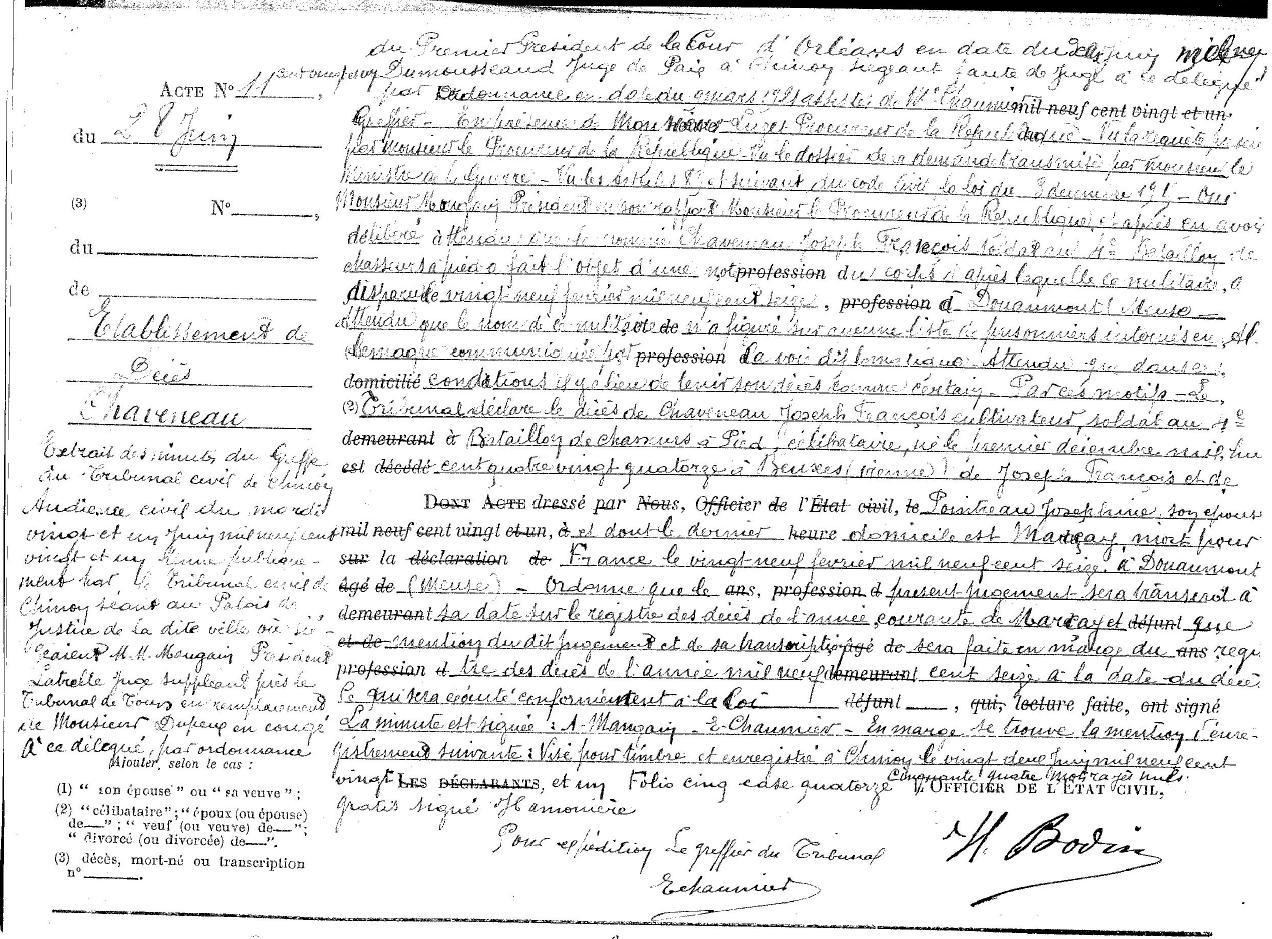 ACTE N° 11
du 28 Juin
(3) N°
du
de
Etablissement de
Décès
Chaveneau
Extrait des minutes du Greffe
du Tribunal civil de Chinon
Audience civil du mardi
vingt et un Juin mil neuf cent
vingt et un tenue publique-
ment par le Tribunal civil de
Chinon séant au Palais de
Justice de la dite ville où sié-
geaient M.M. Mangain Président
juge suppléant près le
Tribunal de Tours en remplacement
de Monsieur Dupeux en congé
A ce délégué, par ordonnance
Ajouter, selon le cas :
(1) “ son épouse ” ou “ sa veuve ” ;
(2) “célibataire” ; “époux (ou épouse)
de—” ; “ veuf (ou veuve) de—” ;
“ divorcé (ou divorcée) de—”.
(3) décès, mort-né ou transcription
n°
du Premier Président de la Cour d'Orléans en date du Juin
Dumousseaud Juge de Paix à Chinon siégeant faute de Juge à ce délégué
par ordonnance en date du mars 1921 assistés de Me Chaumier mil neuf cent vingt et un
Greffier - En présence de Monsieur Procureur de la République - Vu la requête
par Monsieur le Procureur de la République - Vu le dossier de la demande transmise par Monsieur le
Ministre de la Guerre - Vu les Articles 89 et suivant du code civil la loi du 3 décembre 1915 - Oui
Monsieur Mangain Président en son rapport Monsieur le Procureur de la République, et après en avoir
délibéré attendu que le nommé Chaveneau Joseph François soldat au 4e Bataillon de
chasseurs à pied a fait l'objet d'une profession du corps d'après laquelle ce militaire, a
disparu le vingt neuf février mil neuf cent seize, profession à Douaumont (Meuse -
Attendu que le nom de ce militaire et de n'a figuré sur aucune liste de prisonniers internés en Al
lemagne communiquée par profession la voie diplomatique - Attendu que dans ces
domicilié conditions il y a lieu de tenir son décès comme certain - Par ces motifs - Le
(2) Tribunal déclare le décès de Chaveneau Joseph François cultivateur, soldat au 4e
demeurant à Bataillon de chasseurs à Pied, célibataire, né le premier décembre mil huit
est décédé cent quatre vingt quatorze à Beuxes (Vienne) de Joseph François et de
DONT ACTE dressé par Nous, Officier de l'État civil, le Pointreau Joséphine, son épouse
mil neuf cent vingt et un, à et dont le dernier heure domicile est Marçay, mort pour
sur la déclaration de France le vingt neuf février mil neuf cent seize à Douaumont
âgé de (Meuse) - Ordonne que le ans, profession d présent jugement sera transcrit à
demeurant sa date sur le registre des décès de l'année courante de Marçay et défunt que
et de mention du dit Jugement et de sa transcription âgé de sera faite en marge du ans regis
profession d tre des décès de l'année mil neuf demeurant cent seize à la date du décès
Ce qui sera exécuté conformément à la loi défunt , qui, lecture faite, ont signé
La minute est signée : A - Mangain - E - Chaumier - En marge se trouve la mention d'enre-
gistrement suivante : Visé pour timbre et enregistré à Chinon le vingt deux Juin mil neuf cent
vingt LES DÉCLARANTS, et un Folio cinq case quatorze Cinquante quatre mots rayés nuls.
L'OFFICIER DE L'ÉTAT CIVIL,
gratis signé Hamonière
Pour expédition Le greffier du Tribunal
H. Bodin
E Chaumier